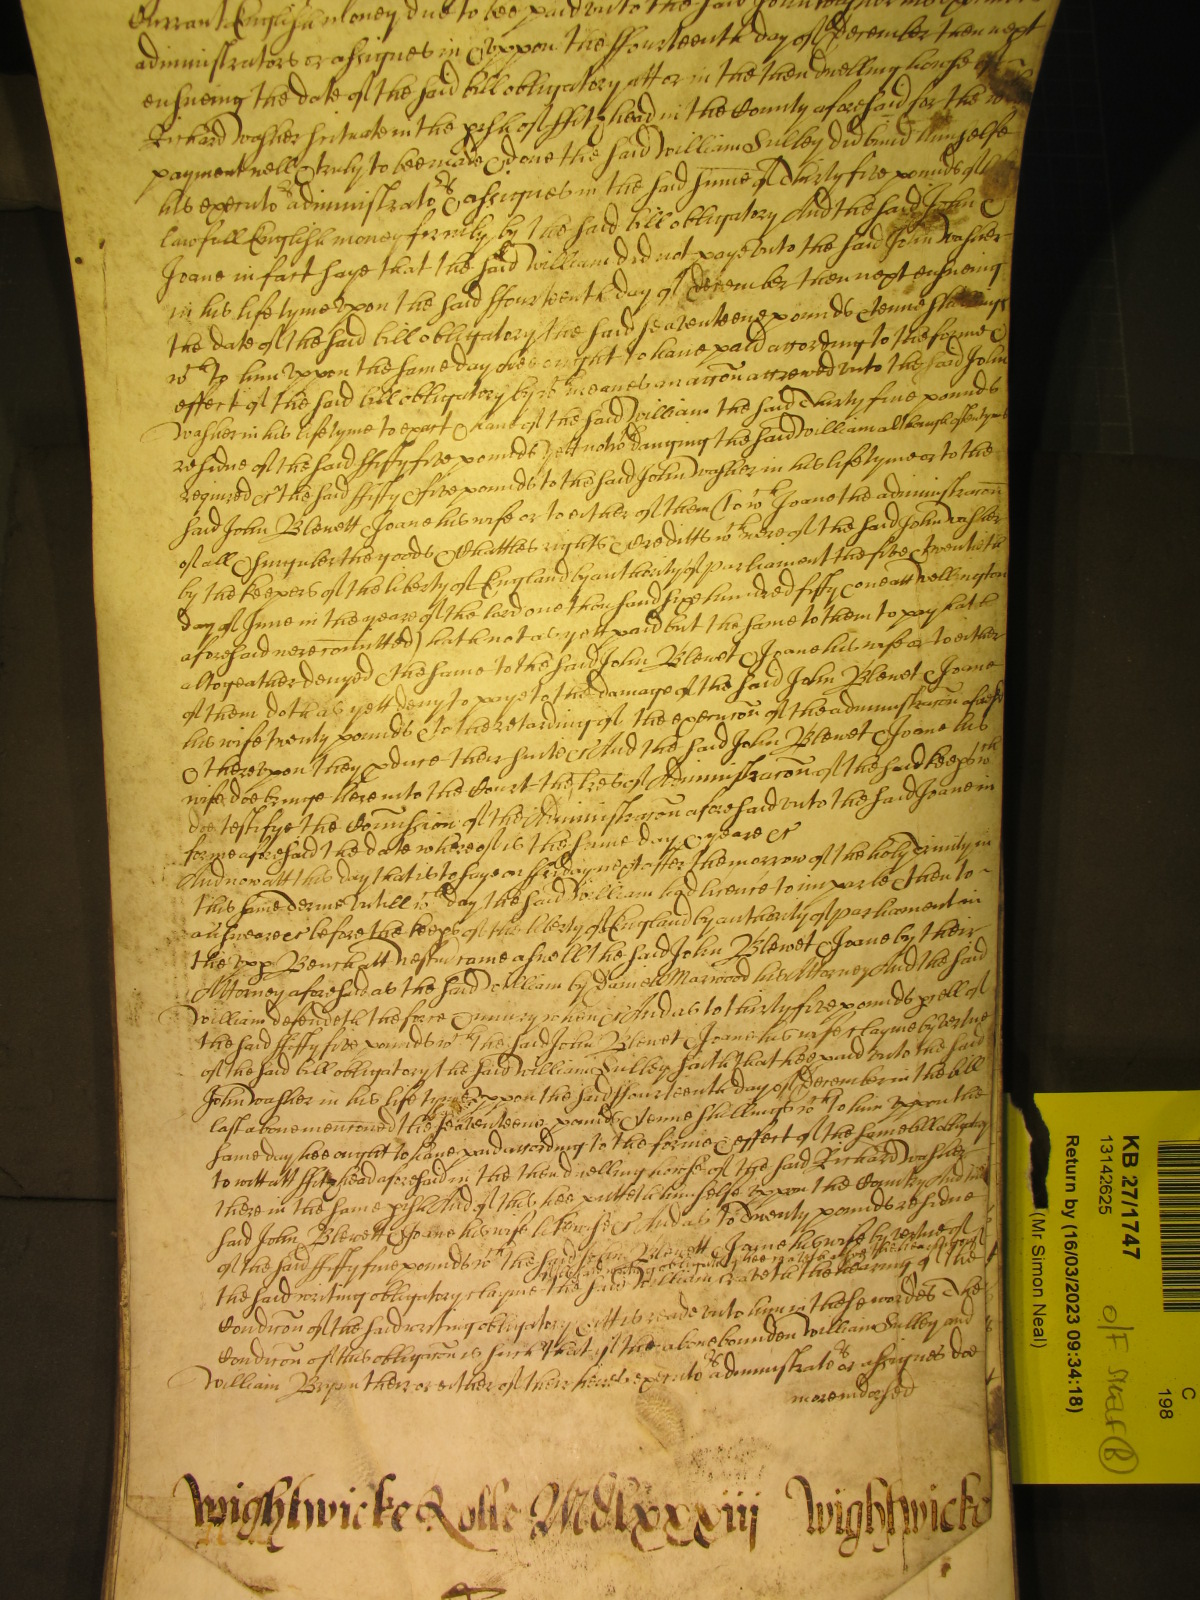 Currant English money due to bee paid unto the said John Washer his
administrators or assignes in & uppon the ffourteenth day of December then next
ensueing the date of the said bill obligatory att or in the then dwelling house of
Richard Washer scituate in the pish of ffitzhead in the County aforesaid for the wch
payment well & truly to bee made & done the said William Sulley did bind himselfe
his executors administrators & assignes in the said summe of Thirty five pounds of
lawfull English money firmly by the said bill obligatory And the said John &
Joane in fact saye that the said William did not paye unto the said John Washer
in his life tyme uppon the said ffourteenth day of December then next ensueing
the date of the said bill obligatory the said seaventeene pounds & tenne shillings
wch to him uppon the same day hee ought to have paid according to the forme &
effect of the said bill obligatory by wch meanes an accon accrewed unto the said John
Washer in his life tyme to exact & have of the said William the said Thirty five pounds
residue of the said ffifty five pounds Yett notwthstanding the said William although oftentymes
required &c the said ffifty & five pounds to the said John Washer in his life tyme or to the
said John Blewett & Joane his wife or to either of them (to wch Joane the administracon
of all & singuler the goods & chattles rights & creditts wch were of the said John Washer
by the keepers of the liberty of England by authority of parliament the five & twentieth
day of June in the yeare of the lord one thousand sixe hundred fifty & one att Wellington
aforesaid were comitted) hath not as yett paid but the same to them to pay hath
altogeather denyed & the same to the said John Blewet & Joane his wife or to either
of them doth as yett deny to paye to the damage of the said John Blewet & Joane
his wife twenty pounds & to the retarding of the execucon of the administracon aforesd
& thereuppon they pduce their suite &c And the said John Blewet & Joane his
wife doe bringe here into the Court the lres of Administracon of the said keeps wch
doe testifye the Comission of the Administracon aforesaid unto the said Joane in
forme aforesaid the date whereof is the same day & yeare &c
And now att this day that is to saye on ffriday next after the morrow of the holy Trinity in
this same Terme untill wch day the said William had licence to imparle & then to
answeare &c before the keeps of the liberty of England by authority of parliament in
the upp Bench att Westmr came aswell the said John Blewet & Joane by their
Attorney aforesaid as the said William by Daniell Marwood his Attorney And the said
William defendeth the force & iniury when &c And as to thirty five pounds pcell of
the said ffifty five pounds wch the said John Blewet & Joane his wife clayme by vertue
of the said bill obligatory the said William Sulley saith that hee paid unto the said
John Washer in his life tyme uppon the said ffourteenth day of December in the bill
last above mencioned the seaventeene pounds & tenne shillings wch to him uppon the
same day hee ought to have paid according to the forme & effect of the same bill obligatory
to witt att ffitzhead aforesaid in the then dwelling house of the said Richard Washer
there in the same pish And of this hee putteth himselfe uppon the Countrey And the
said John Blewett & Joane his wife likewise &c And as to Twenty pounds residue
of the said ffifty five pounds wch the said John Blewett & Joane his wife by vertue of
the said writing obligatory clayme the said William craveth the hearing of the
Condicon of the said writing obligatory & itt is reade unto him in these wordes The
Condicon of this obligacon is such That if the above bounden William Sulley and
William Bryan their or either of their heires executors administrators or assignes doe
more indorsed
Wightwicke Rolle Mdlxxxiiij Wightwicke
KB 27/1747
13142625
Return by (16/03/2023 09:34:18)
(Mr Simon Neal)
C
198